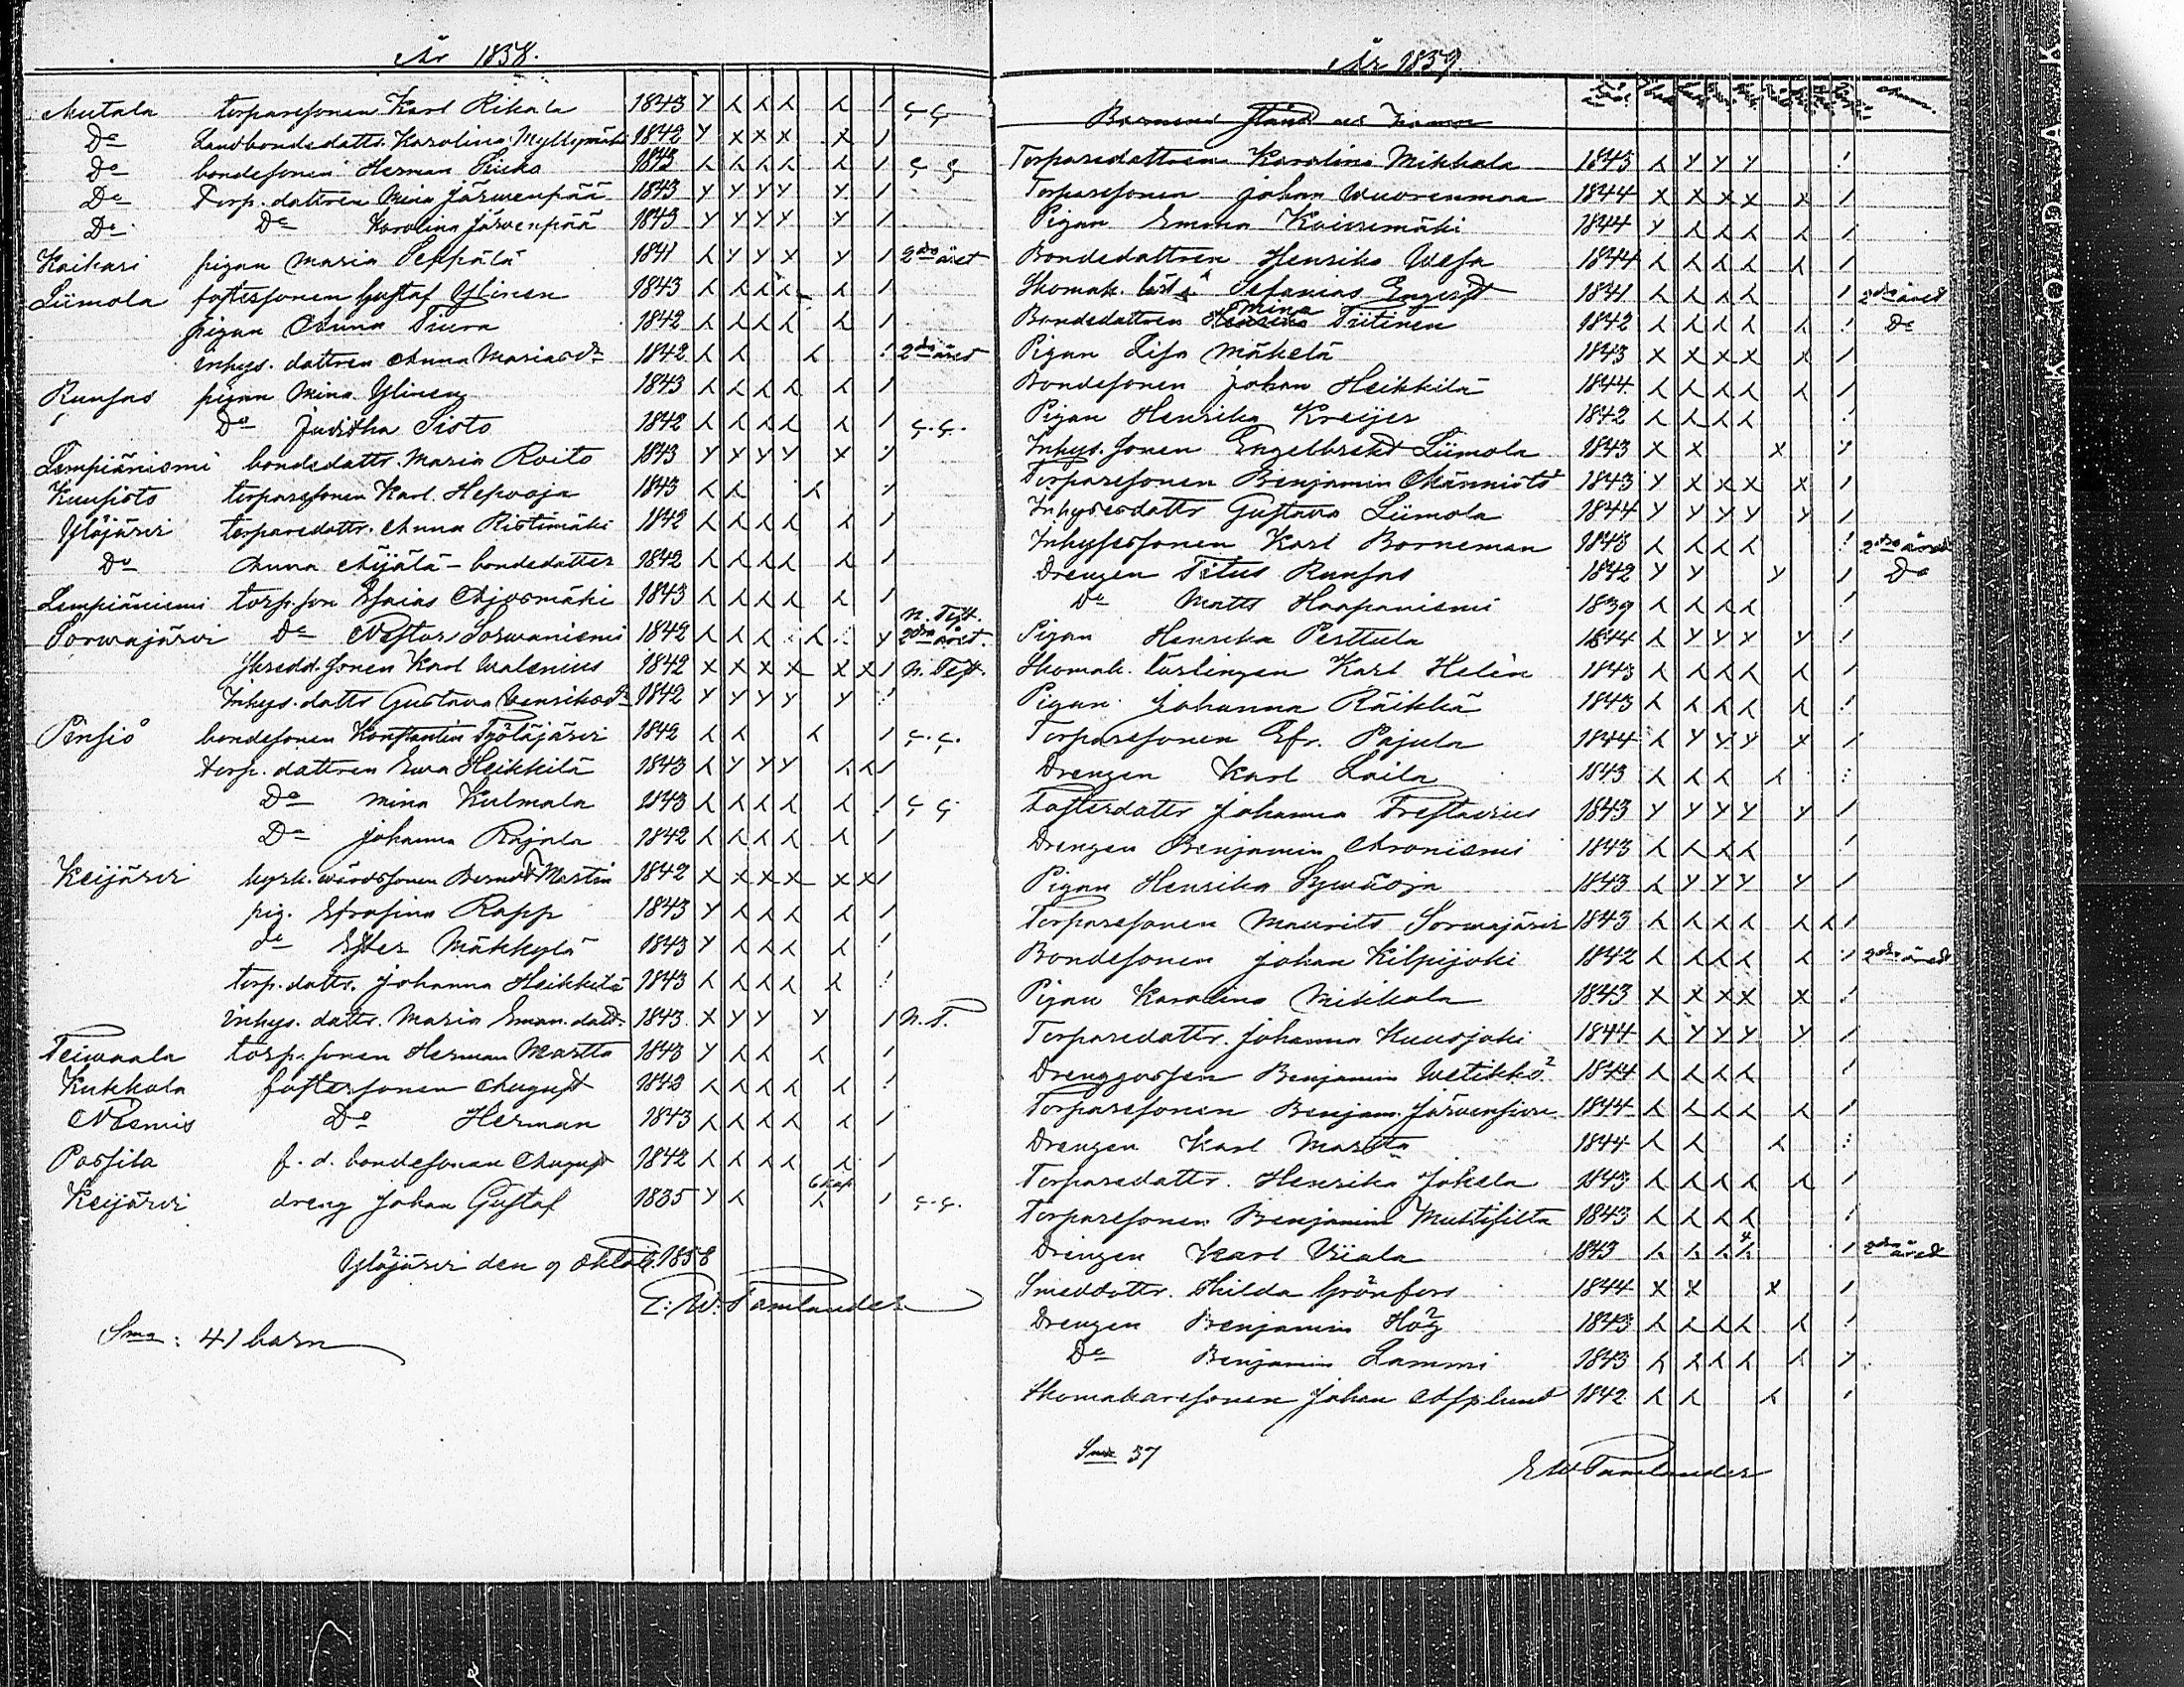 År 1858.
Mutala torparesonen Karl Rikala 1843 Y λ λ λ λ / ç ç
Do Landbondedattr. Karolina Myllymäki 1842 Y x x x x /
Do bondesonen Herman 1843 λ λ λ λ λ / ç ç
Do Torp. dattren Mina Järwenpää 1843 Y Y Y Y Y /
Do Do Karolina Järwenpää 1843 Y Y Y Y Y /
Kaikari pigan Maria Seppälä 1841 λ Y Y x Y / 2dra året
Liimola fostersonen Gustaf Ylinen 1843 λ λ λ λ λ /
pigan Anna Tiura 1842 λ λ λ λ λ /
inhys. dattren Anna Mariasdr 1842 λ λ λ / 2dra året
Runsas pigan Mina Ylinen 1843 λ λ λ λ λ /
Do Juditha Sisto 1842 λ λ λ λ λ / ç. ç.
Lempiäniemi bondedattr. Maria Roito 1843 Y Y Y Y x /
Kuusisto torparesonen Karl Hepooja 1843 λ λ λ /
Ylöjärvi torparedattr. Anna Ristimäki 1842 λ λ λ λ λ /
Do Anna Äijälä - bondedatter 1842 λ λ λ λ λ /
Lempiäniemi torp. son Esaias Ajosmäki 1843 λ λ λ λ λ / n. Test.
Sorwajärvi Do Nestor Sorwaniemi 1842 λ λ λ λ Y 2dra året.
Skredd. sonen Karl Walenius 1842 x x x x x x / n. Test.
Inhys. dattr Gustava Henriksdr 1842 Y Y Y Y Y /
Pinsiö bondesonen Konstantin Työläjärvi 1842 λ λ λ / ç. ç.
torp. dattren Ewa Heikkilä 1843 λ Y Y Y λ λ /
Do Mina Kulmala 1843 λ λ λ λ λ / ç ç
Do Johanna Rajala 1842 λ λ λ λ λ /
Keijärvi kyrk. wärdssonen Berndt Martin 1842 x x x x x x /
pig. Efrosina Rapp 1843 Y λ λ λ λ /
do Ester Mäkkylä 1843 Y λ λ λ λ /
torp. dattr. Johanna Heikkilä 1843 λ λ λ λ λ /
inhys. dattr. Maria Eman. dotr. 1843 x Y Y Y / n. T.
Teiwaala torp. sonen Herman Martta 1843 Y λ λ λ /
Kukkola fostersonen August 1842 λ λ λ λ λ /
Niemis Do Herman 1843 λ λ λ λ λ /
Possila f. d. bondesonen August 1842 λ λ λ λ λ /
6 kap
Keijärvi dreng Johan Gustaf 1835 Y λ λ / ç. ç.
Ylöjärvi den 9 Oktob. 1858
E: W: Pamlander
Sma: 41 barn
År 1859.
Barnens stånd och namn
Torparedattren Karolina Mikkola 1843 λ Y Y Y /
Torparesonen Johan Wuorenmaa 1844 x x x x x /
Pigan Emma Koivumäki 1844 Y λ λ λ λ /
Bondedattren Henrika Wesa 1844 λ λ λ λ λ /
Skomak. Sefanias Engqvist 1841 λ λ λ λ / 2dra året
Mina
Bondedattren Henrika Tiitinen 1842 λ λ λ λ λ / Do
Pigan Lisa Mäkelä 1843 x x x x x /
Bondesonen Johan Heikkilä 1844. λ λ λ λ λ /
Pigan Henrika Kreijer 1842 λ λ λ λ /
Inhys. sonen Engelbrekt Liimola 1843 x x x /
Torparesonen Benjamin Männistö 1843 Y x x x x /
Inhysesdattr Gustava Liimola 1844 Y Y Y Y Y /
Inhysessonen Karl Borneman 1843 λ λ λ λ / 2dra året
Drengen Titus Runsas 1842 Y Y Y / Do
Do Matts Haapaniemi 1839 λ λ λ λ /
Pigan Henrika Perttula 1844 λ Y Y Y Y /
Skomak. lärlingen Karl Helén 1843 λ λ λ λ λ /
Pigan Johanna Räikkä 1843 λ λ λ λ λ /
Torparesonen Efr. Pajula 1844 λ Y Y Y x /
Drengen Karl Laila 1843 λ λ λ λ /
Fosterdattr Johanna Frestadius 1843 Y Y Y Y Y /
Drengen Benjamin Aroniemi 1843 λ λ λ λ /
Pigan Henrika Sywäoja 1843 λ Y Y Y Y /
Torparesonen Maurits Sorwajärvi 1843 λ λ λ λ λ λ /
Bondesonen Johan Kilpijoki 1842 λ λ λ λ λ / 2dra året
Pigan Karolina Mikkola 1843 x x x x x /
Torparedattr. Johanna Kuusjoki 1844 λ Y Y Y Y /
Drenggossen Benjamin Wetikkö 1844 λ λ λ λ /
Torparesonen Benjam. Järvensivu 1844 λ λ λ λ λ /
Drengen Karl Martta 1844 λ λ λ /
Torparedattr. Henrika Jokela 1843 λ λ λ λ λ /
Torparesonen Benjamin Multisilta 1843 λ λ λ λ /
Drengen Karl Viiala 1843 λ λ λ λ / 2dra året
Smeddottr. Hilda Grönfors 1844 x x x /
Drengen Benjamin Hög 1843 λ λ λ λ λ /
Do Benjamin Lammi 1843 λ λ λ λ λ Y
Skomakaresonen Johan Asplund 1842 λ λ λ /
Sma 37
E W Pamlander
KODAK